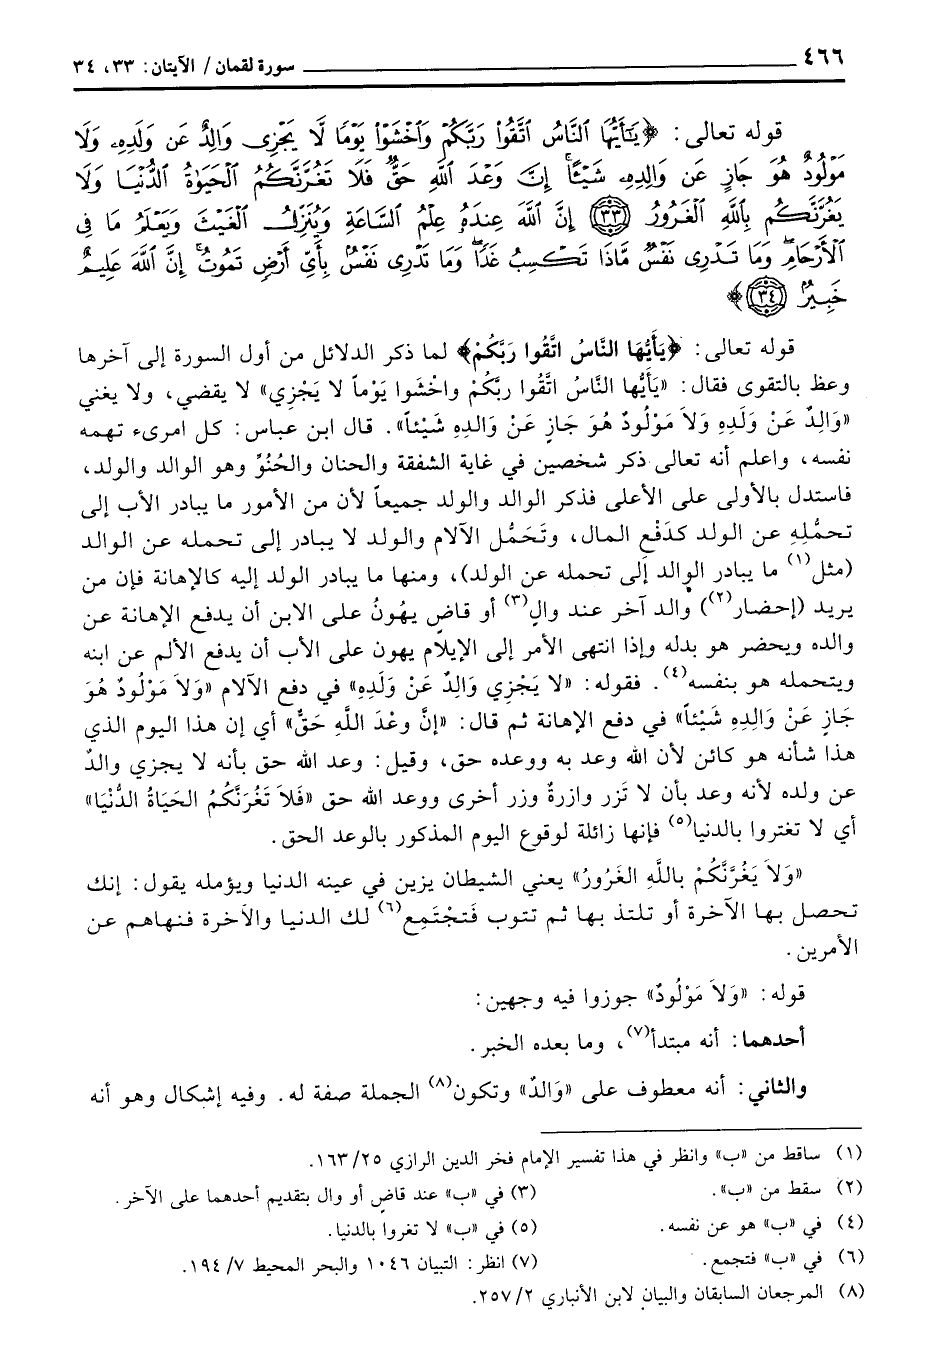 ٤٦٦ سورة لقمان / الآيتان: ٣٣، ٣٤
قوله تعالى: ﴿يَٰٓأَيُّهَا ٱلنَّاسُ ٱتَّقُوا۟ رَبَّكُمْ وَٱخْشَوْا۟ يَوْمًا لَّا يَجْزِى وَالِدٌ عَن وَلَدِهِۦ وَلَا
مَوْلُودٌ هُوَ جَازٍ عَن وَالِدِهِۦ شَيْـًٔا ۚ إِنَّ وَعْدَ ٱللَّهِ حَقٌّ ۖ فَلَا تَغُرَّنَّكُمُ ٱلْحَيَوٰةُ ٱلدُّنْيَا وَلَا
يَغُرَّنَّكُم بِٱللَّهِ ٱلْغَرُورُ ﴿٣٣﴾ إِنَّ ٱللَّهَ عِندَهُۥ عِلْمُ ٱلسَّاعَةِ وَيُنَزِّلُ ٱلْغَيْثَ وَيَعْلَمُ مَا فِى
ٱلْأَرْحَامِ ۖ وَمَا تَدْرِى نَفْسٌ مَّاذَا تَكْسِبُ غَدًا ۖ وَمَا تَدْرِى نَفْسٌۢ بِأَىِّ أَرْضٍ تَمُوتُ ۚ إِنَّ ٱللَّهَ عَلِيمٌ
خَبِيرٌۢ ﴿٣٤﴾﴾
قوله تعالى: ﴿يَأَيُّهَا النَّاسُ اتَّقُوا رَبَّكُمْ﴾ لما ذكر الدلائل من أول السورة إلى آخرها
وعظ بالتقوى فقال: «يَأَيُّها النَّاسُ اتَّقُوا ربَّكُمْ واخْشَوا يَوْماً لا يَجْزِي» لا يقضي، ولا يغني
«وَالِدٌ عَنْ وَلَدِهِ وَلاَ مَوْلُودٌ هُوَ جَازٍ عَنْ وَالدِهِ شَيْئاً». قال ابن عباس: كل امرىء تهمه
نفسه، واعلم أنه تعالى ذكر شخصين في غاية الشفقة والحنان والحُنُوِّ وهو الوالد والولد،
فاستدل بالأولى على الأعلى فذكر الوالد والولد جميعاً لأن من الأمور ما يبادر الأب إلى
تحمُّلِهِ عن الولد كدَفْعِ المال، وتَحَمُّل الآلام والولد لا يبادر إلى تحمله عن الوالد
(مثل(١) ما يبادر الوالد إلى تحمله عن الولد)، ومنها ما يبادر الولد إليه كالإهانة فإن من
يريد (إحضار(٢)) والد آخر عند والٍ(٣) أو قاضٍ يهُونُ على الابن أن يدفع الإهانة عن
والده ويحضر هو بدله وإذا انتهى الأمر إلى الإيلام يهون على الأب أن يدفع الألم عن ابنه
ويتحمله هو بنفسه(٤). فقوله: «لا يَجْزِي وَالِدٌ عَنْ وَلَدِهِ» في دفع الآلام «وَلاَ مَوْلُودٌ هُوَ
جَازٍ عَنْ وَالِدِهِ شَيْئاً» في دفع الإهانة ثم قال: «إنَّ وعْدَ اللَّهِ حَقٌّ» أي إن هذا اليوم الذي
هذا شأنه هو كائن لأن الله وعد به ووعده حق، وقيل: وعد الله حق بأنه لا يجزي والدٌ
عن ولده لأنه وعد بأن لا تَزر وازرةٌ وزر أخرى ووعد الله حق «فَلاَ تَغُرَّنَّكُمُ الحَيَاةُ الدُّنْيَا»
أي لا تغتروا بالدنيا(٥) فإنها زائلة لوقوع اليوم المذكور بالوعد الحق.
«وَلاَ يَغُرَّنَّكُمْ باللَّهِ الغَرُورُ» يعني الشيطان يزين في عينه الدنيا ويؤمله يقول: إنك
تحصل بها الآخرة أو تلتذ بها ثم تتوب فَتجْتَمِع(٦) لك الدنيا والآخرة فنهاهم عن
الأمرين.
قوله: «وَلاَ مَوْلُودٌ» جوزوا فيه وجهين:
أحدهما: أنه مبتدأ(٧)، وما بعده الخبر.
والثاني: أنه معطوف على «وَالدٌ» وتكون(٨) الجملة صفة له. وفيه إشكال وهو أنه
(١) ساقط من «ب» وانظر في هذا تفسير الإمام فخر الدين الرازي ٢٥/ ١٦٣.
(٢) سقط من «ب». (٣) في «ب» عند قاض أو وال بتقديم أحدهما على الآخر.
(٤) في «ب» هو عن نفسه. (٥) في «ب» لا تغروا بالدنيا.
(٦) في «ب» فتجمع. (٧) انظر: التبيان ١٠٤٦ والبحر المحيط ٧/ ١٩٤.
(٨) المرجعان السابقان والبيان لابن الأنباري ٢/ ٢٥٧.